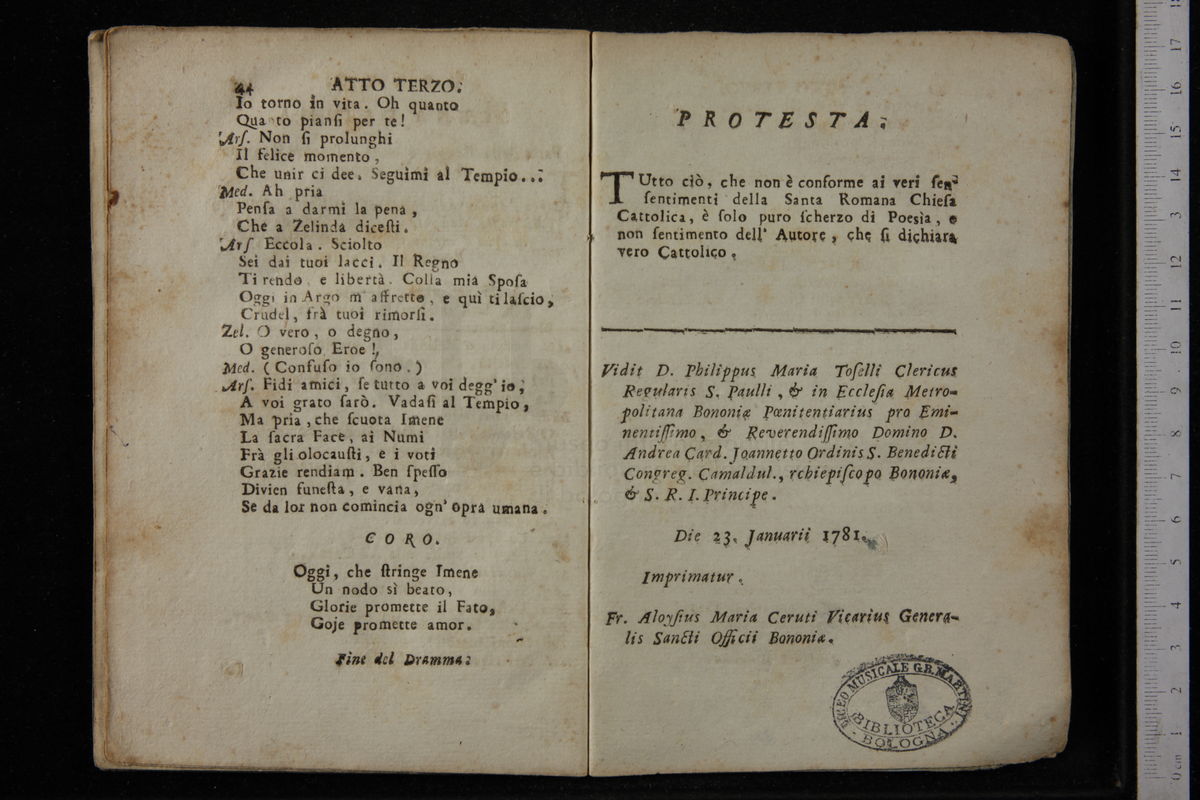 44 ATTO TERZO.
Io torno in vita. Oh quanto
Quanto pianſi per te!
Arſ. Non ſi prolunghi
Il felice momento,
Che unir ci dee. Seguimi al Tempio...
Med. Ah pria
Penſa a darmi la pena,
Che a Zelinda diceſti.
Arſ Eccola. Sciolto
Sei dai tuoi lacci. Il Regno
Ti rendo e libertà. Colla mia Spoſa
Oggi in Argo m'affretto, e quì ti laſcio,
Crudel, frà tuoi rimorſi.
Zel. O vero, o degno,
O generoſo Eroe!
Med. (Confuſo io ſono.)
Arſ. Fidi amici, ſe tutto a voi degg' io,
A voi grato ſarò. Vadaſi al Tempio,
Ma pria, che ſcuota Imene
La ſacra Face, ai Numi
Frà gli olocauſti, e i voti
Grazie rendiam. Ben ſpeſſo
Divien funeſta, e vana,
Se da lor non comincia ogn' opra umana.
CORO.
Oggi, che ſtringe Imene
Un nodo sì beato,
Glorie promette il Fato,
Goje promette amor.
Fine del Dramma.
PROTESTA.
TUtto ciò, che non è conforme ai veri ſen-
ſentimenti della Santa Romana Chieſa
Cattolica, è ſolo puro ſcherzo di Poesìa, e
non ſentimento dell' Autore, che ſi dichiara
vero Cattolico.
Vidit D. Philippus Maria Toſelli Clericus
Regularis S. Paulli, & in Eccleſia Metro-
politana Bononiæ Pœnitentiarius pro Emi-
nentiſſimo, & Reverendiſſimo Domino D.
Andrea Card. Joannetto Ordinis S. Benedicti
Congreg. Camaldul., rchiepiſcopo Bononiæ,
& S. R. I. Principe.
Die 23. Januarii 1781.
Imprimatur.
Fr. Aloyſius Maria Ceruti Vicarius Genera-
lis Sancti Officii Bononiæ.
LICEO MUSICALE G.B. MARTINI
BIBLIOTECA
BOLOGNA
17
16
15
14
13
12
11
10
9
8
7
6
5
4
3
2
1
0 cm